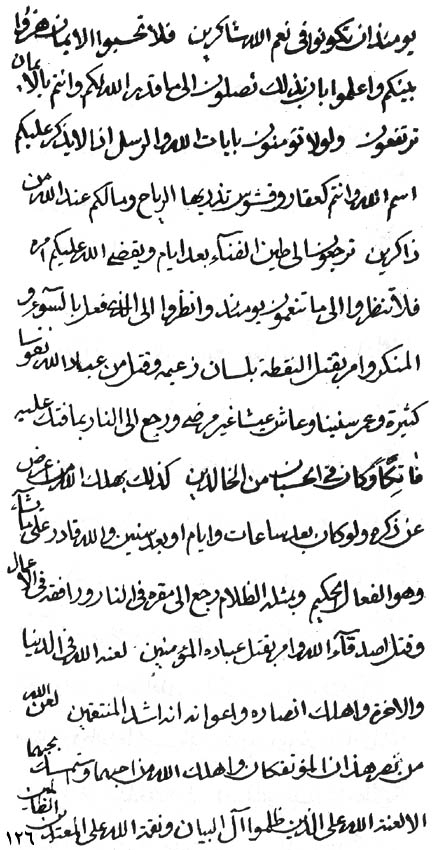 يومئذ ان تكونوا في نعم الله شاكرين فلا تحسبوا الايمان هزوا
بينكم واعلموا بان بذلك تصلون الى ما قدر الله لكم وانتم بالايمان
ترتفعون ولولا تؤمنون بايات الله والرسل اذا لا يذكر عليكم
اسم الله وانتم كعقار وقشور تذريها الرياح وما لكم عند الله من
ذاكرين ترجعون الى طين الفناء بعد ايام ويقضي الله عليكم امره
فلا تنظروا الى ما تنعمون يومئذ وانظروا الى الذي فعل بالسوء و
المنكر وامر بقتل النقطة بلسان زعيمه وقتل من عباد الله نفوسا
كثيرة وعمر سنينا وعاش عيشا غير مرضي ورجع الى النار بما فتك عليه
فاتكا وكان في الحسبان من الخالدين كذلك يهلك الله من عرض
عن ذكره ولو كان بعد ساعات وايام او بعد سنين والله قادر على ما يشاء
وهو الفعال الحكيم وبمثله الظلام رجع الى مقره في النار ورافقه في الاعمال
وقتل اصدقاء الله وامر بقتل عباده المؤمنين لعنه الله في الدنيا
والاخرة واهلك انصاره واعوانه انه اشد المنتقمين لعن الله
من نصر هذان المؤتفكان واهلك الله من احبهما وتمسك بحبهما
الا لعنة الله على الذين ظلموا آل البيان ونقمة الله على المعتدين الظالمين
١٢٦